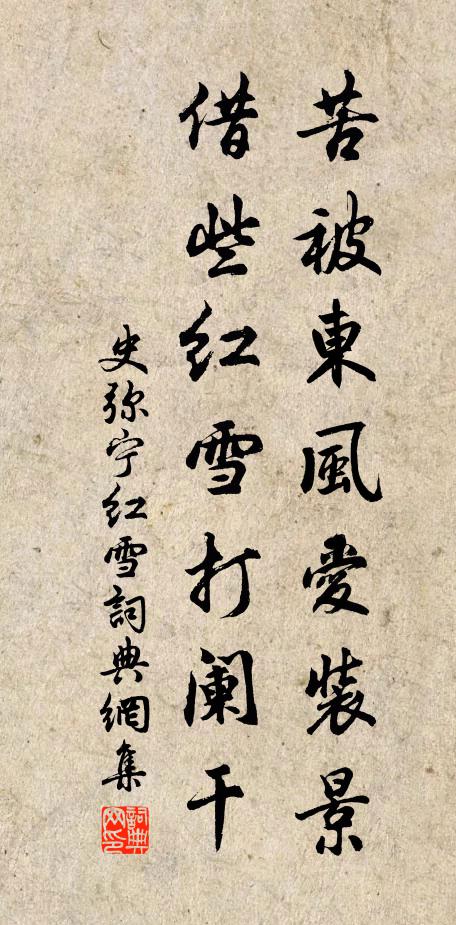 苦被東風愛裝景
借些红雪打阑干
史弥宁红雪詞典網集
詞典网印